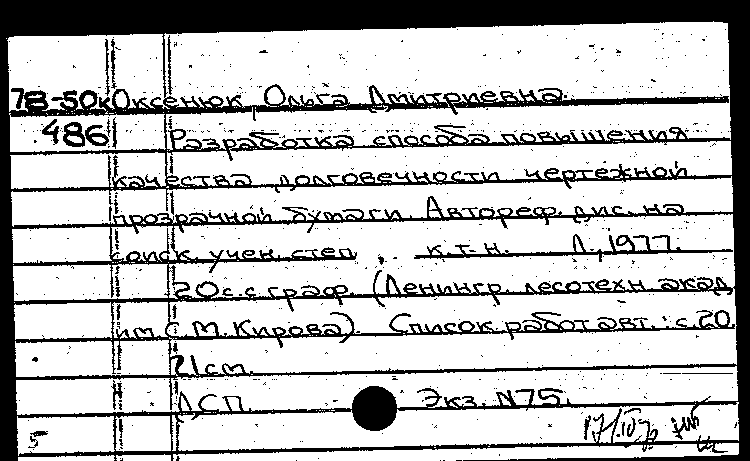 78-50к Оксенюк, Ольга Дмитриевна.
486 Разработка способа повышения
качества долговечности чертежной
прозрачной бумаги. Автореф. дис. на
соиск. учен. степ. к.т.н. Л., 1977.
20с. с граф. (Ленингр. лесотехн. акад.
им. С.М. Кирова). Список работ авт.: с.20.
21см.
ДСП. Экз. N75.
5